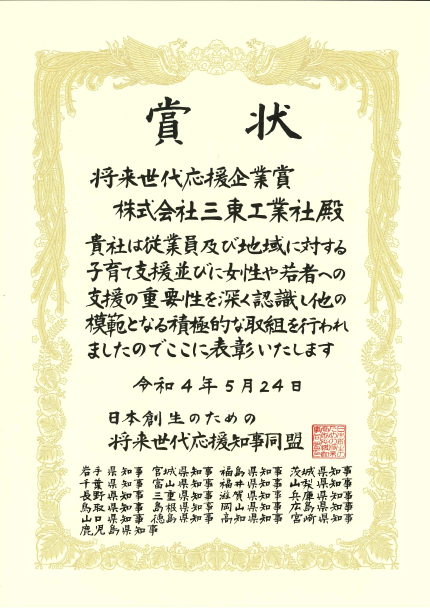 賞状
将来世代応援企業賞
株式会社三東工業社殿
貴社は従業員及び地域に対する
子育て支援並びに女性や若者への
支援の重要性を深く認識し他の
模範となる積極的な取組を行われ
ましたのでここに表彰いたします
令和4年5月24日
日本創生のための
将来世代応援知事同盟
岩手県知事 宮城県知事 福島県知事 茨城県知事
千葉県知事 富山県知事 福井県知事 山梨県知事
長野県知事 三重県知事 滋賀県知事 兵庫県知事
鳥取県知事 島根県知事 岡山県知事 広島県知事
山口県知事 徳島県知事 高知県知事 宮崎県知事
鹿児島県知事